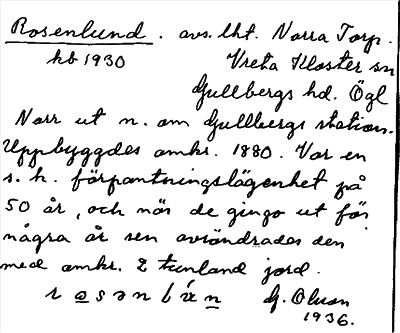 Rosenlund. avs. lht. Norra Torp.
hb 1930 Vreta Kloster sn
Gullbergs hd. Ögl
Norr ut n. om Gullbergs station.
Uppbyggdes omkr. 1880. Var en
s. k. förpantningslägenhet på
50 år, och när de gingo ut för
några år sen avsöndrades den
med omkr. 2 tunland jord.
G. Olsson
1936.